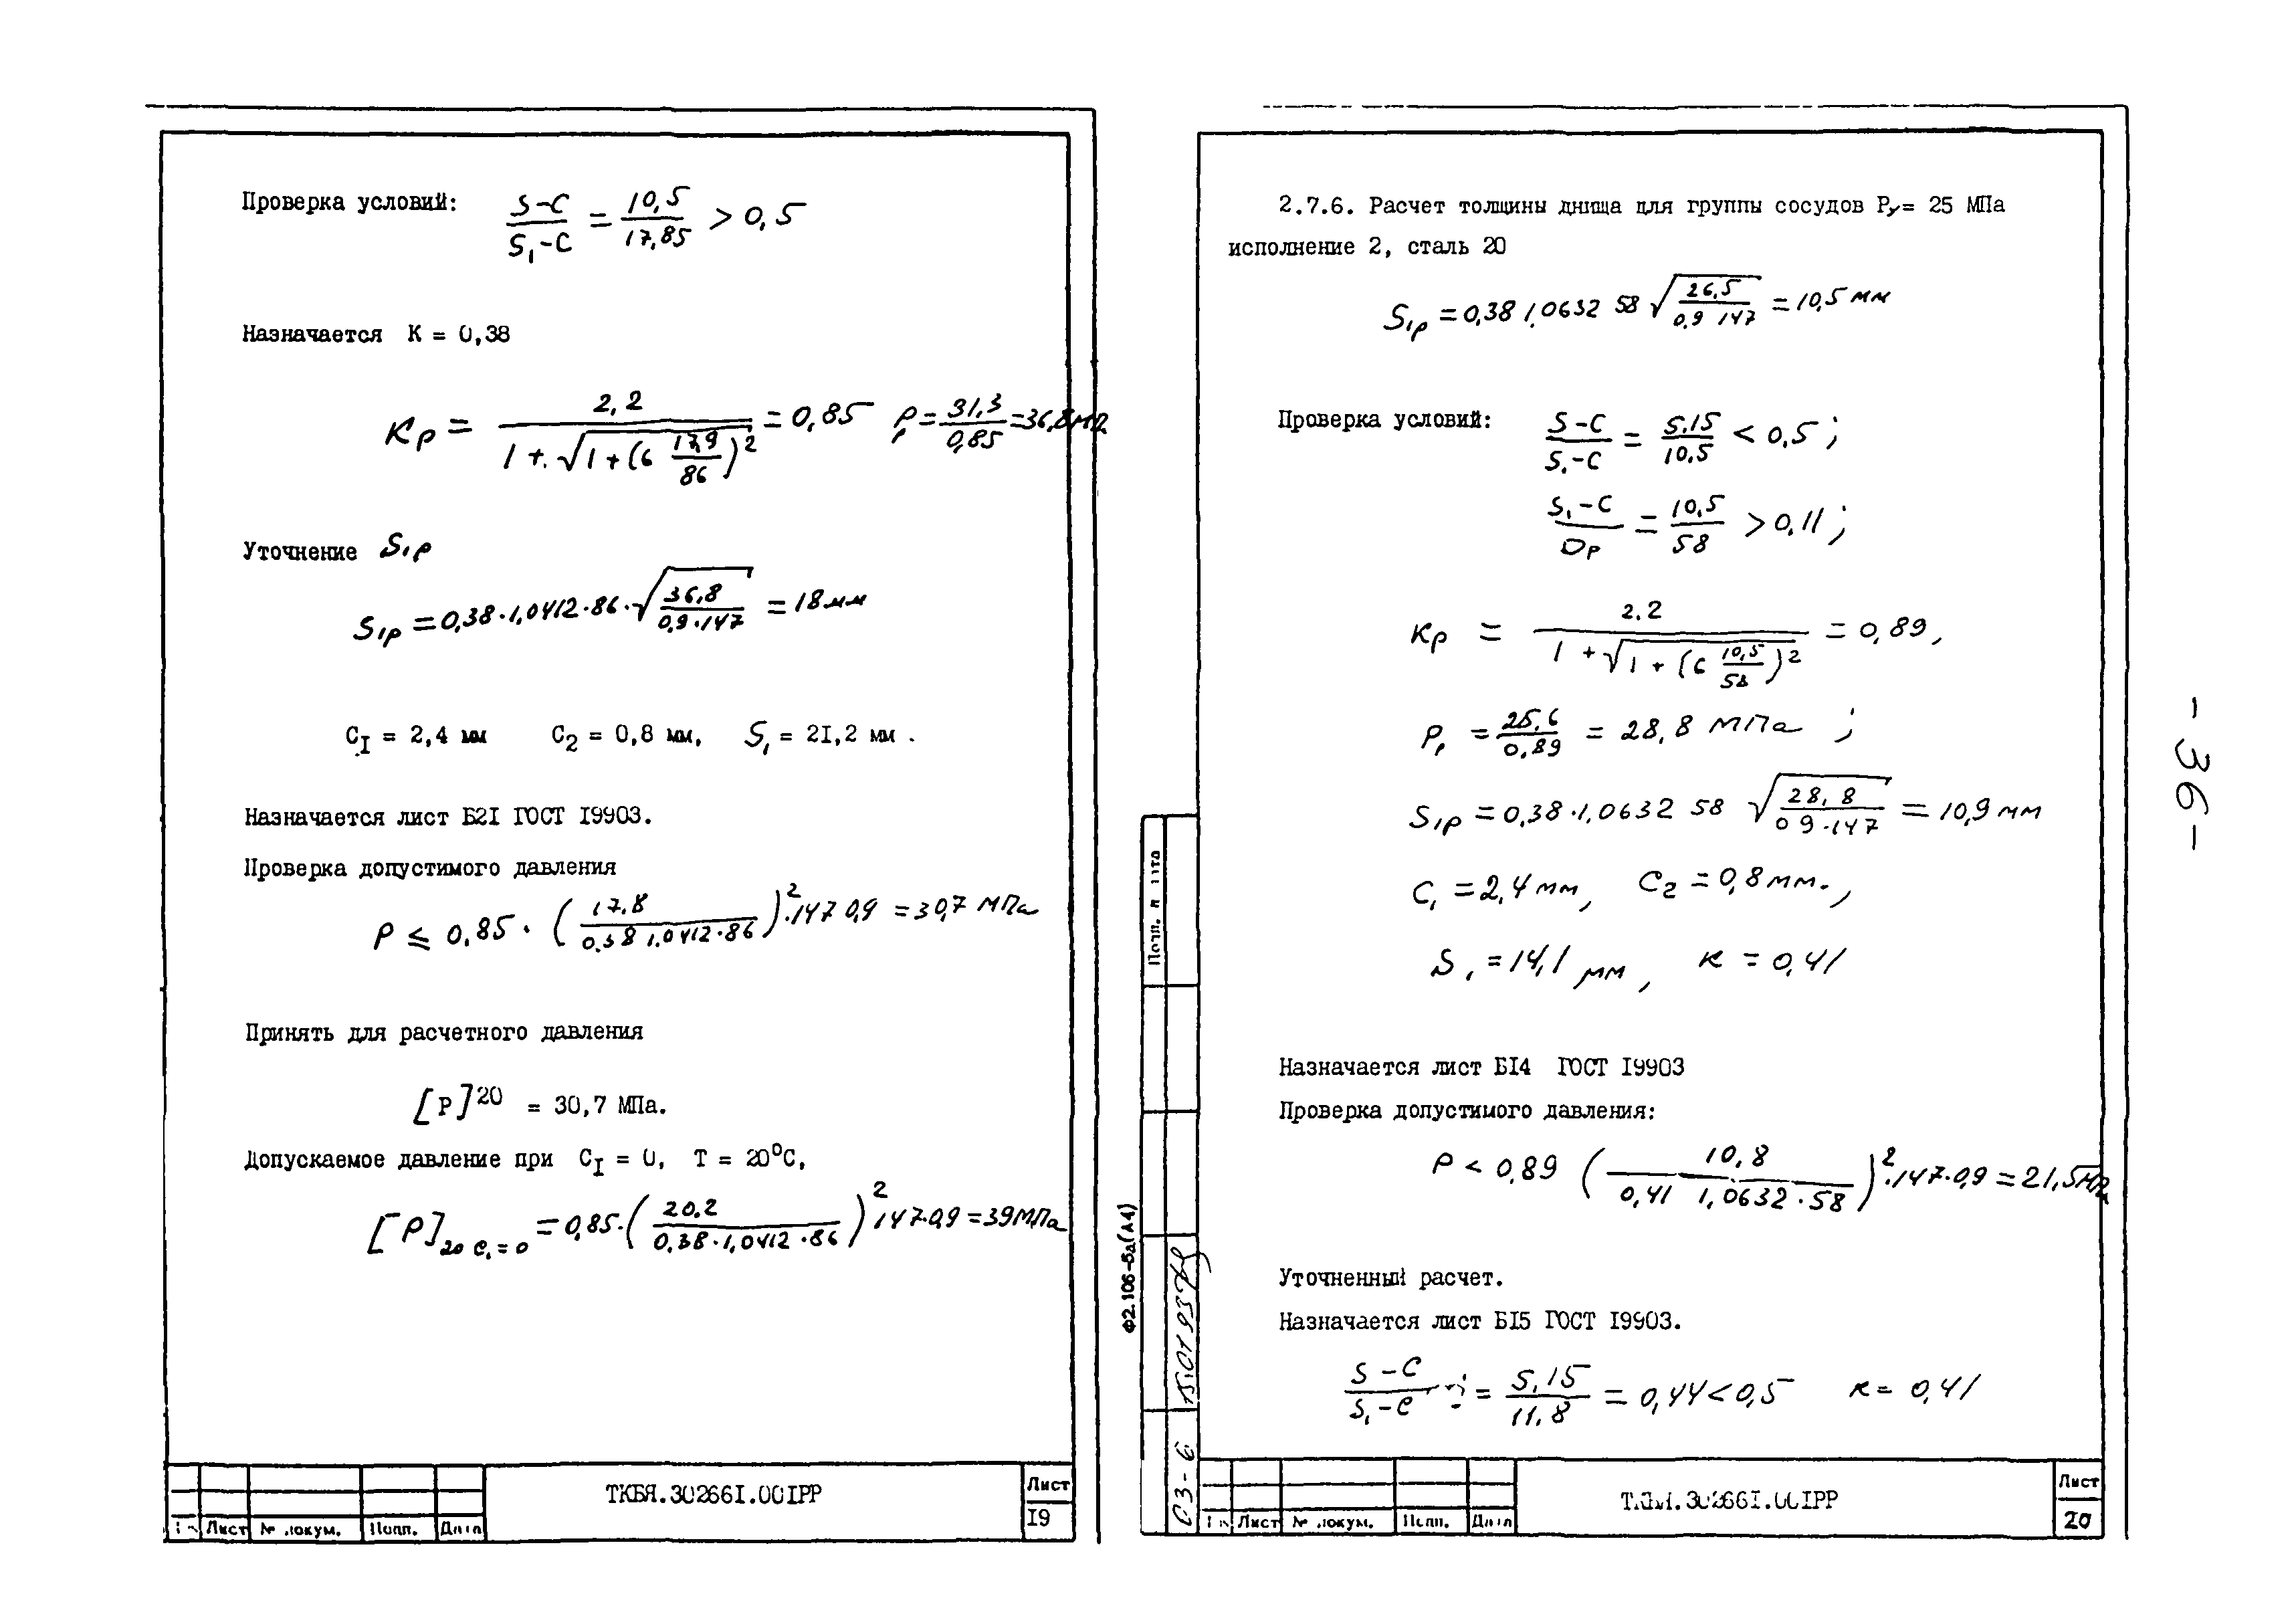 Проверка условий: (S-C)/(S₁-C) = 10,5/17,85 > 0,5
Назначается К = 0,38
Kp = 2,2/(1+√(1+(6 17,9/86)²)) = 0,85 P₁ = 31,3/0,85 = 36,8 МПа
Уточнение S₁p
S₁p = 0,38·1,0412·86·√(36,8/(0,9·147)) = 18 мм
C_I = 2,4 мм C₂ = 0,8 мм, S₁ = 2I,2 мм .
Назначается лист Б2I ГОСТ I9903.
Проверка допустимого давления
P ≤ 0,85·(17,8/(0,38 1,0412·86))²·147 0,9 = 30,7 МПа
Принять для расчетного давления
[P]²⁰ = 30,7 МПа.
Допускаемое давление при C_I = 0, T = 20°C,
[P]₂₀ C₁=0 = 0,85·(20,2/(0,38·1,0412·86))² 147·0,9 = 39 МПа
ТКБЯ.30266I.00IРР
Лист
I9
Лист № докум. Подп. Дата
2.7.6. Расчет толщины днища для группы сосудов Ру= 25 МПа
исполнение 2, сталь 20
S₁p = 0,38 1,0632 58 √(26,5/(0,9 147)) = 10,5 мм
Проверка условий: (S-C)/(S₁-C) = 5,15/10,5 < 0,5 ;
(S₁-C)/Dp = 10,5/58 > 0,11 ;
Kp = 2,2/(1+√(1+(6 10,5/58)²)) = 0,89,
P₁ = 25,6/0,89 = 28,8 МПа ;
S₁p = 0,38·1,0632 58 √(28,8/(0 9·147)) = 10,9 мм
C₁ = 2,4 мм, C₂ = 0,8 мм.,
S₁ = 14,1 мм, к = 0,41
Назначается лист БI4 ГОСТ I9903
Проверка допустимого давления:
P < 0,89 (10,8/(0,41 1,0632·58))²·147·0,9 = 21,5 МПа
Уточненный расчет.
Назначается лист БI5 ГОСТ I9903.
(S-C)/(S₁-C) = 5,15/11,8 = 0,44 < 0,5 к = 0,41
30266I.00IРР
Лист
20
Лист № докум. Подп. Дата
Ф2.106-5а(А4)
03-6
- 36 -